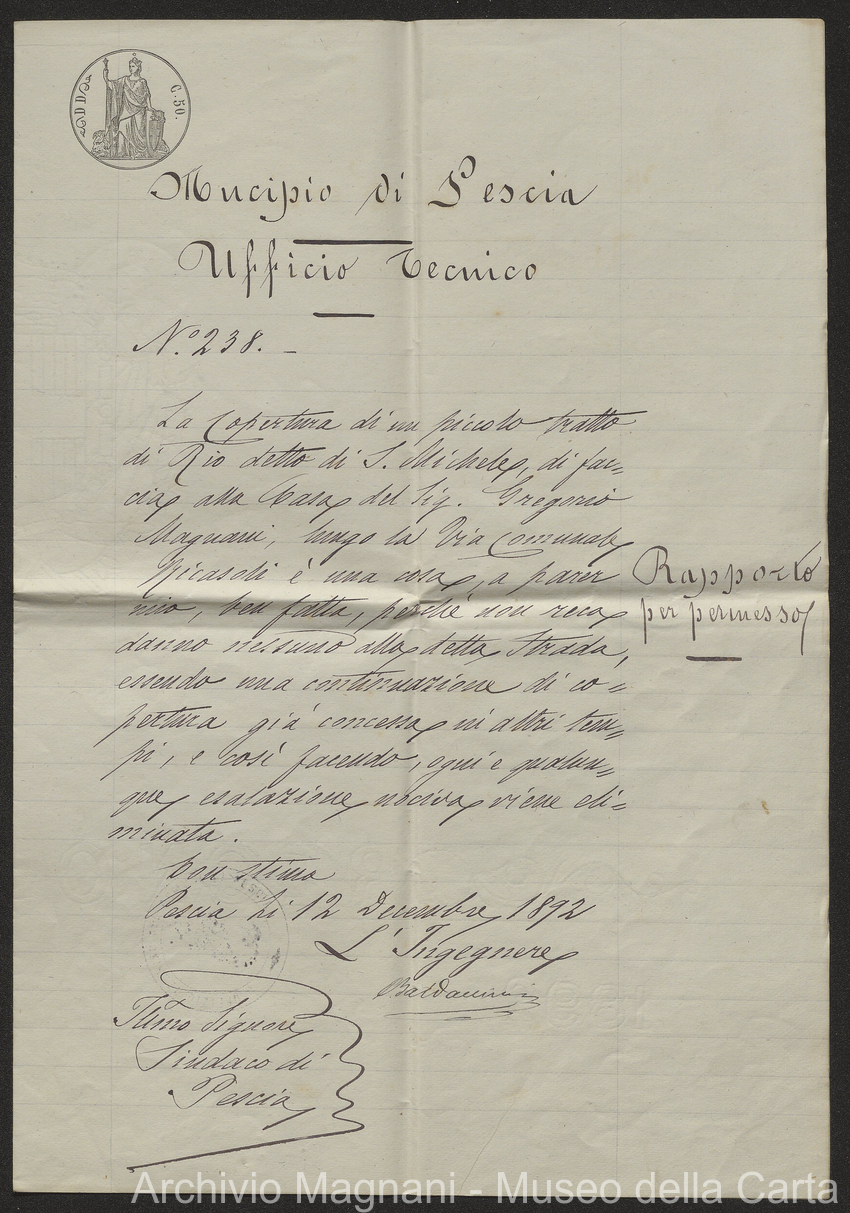 C. 50.
Mucipio di Pescia
Ufficio Tecnico
N.° 238. -
La Copertura di un piccolo tratto
di Rio detto di S. Michele, di fac=
cia alla Casa del Sig. Gregorio
Magnani, lungo la Via Comunale
Ricasoli é una cosa, a parer
mio, ben fatta, perché non reca
danno nessuno alla detta Strada,
essendo una continuazione di co=
pertura giá concessa in altri tem=
pi, e cosí facendo, ogni e qualun=
que, esalazione nociva viene eli=
minata.
Con stima
Pescia li 12 Decembre 1892
L'Ingegnere
Baldaccini
Illmo Signore
Sindaco di
Pescia
Rapporto
per permesso
Archivio Magnani - Museo della Carta